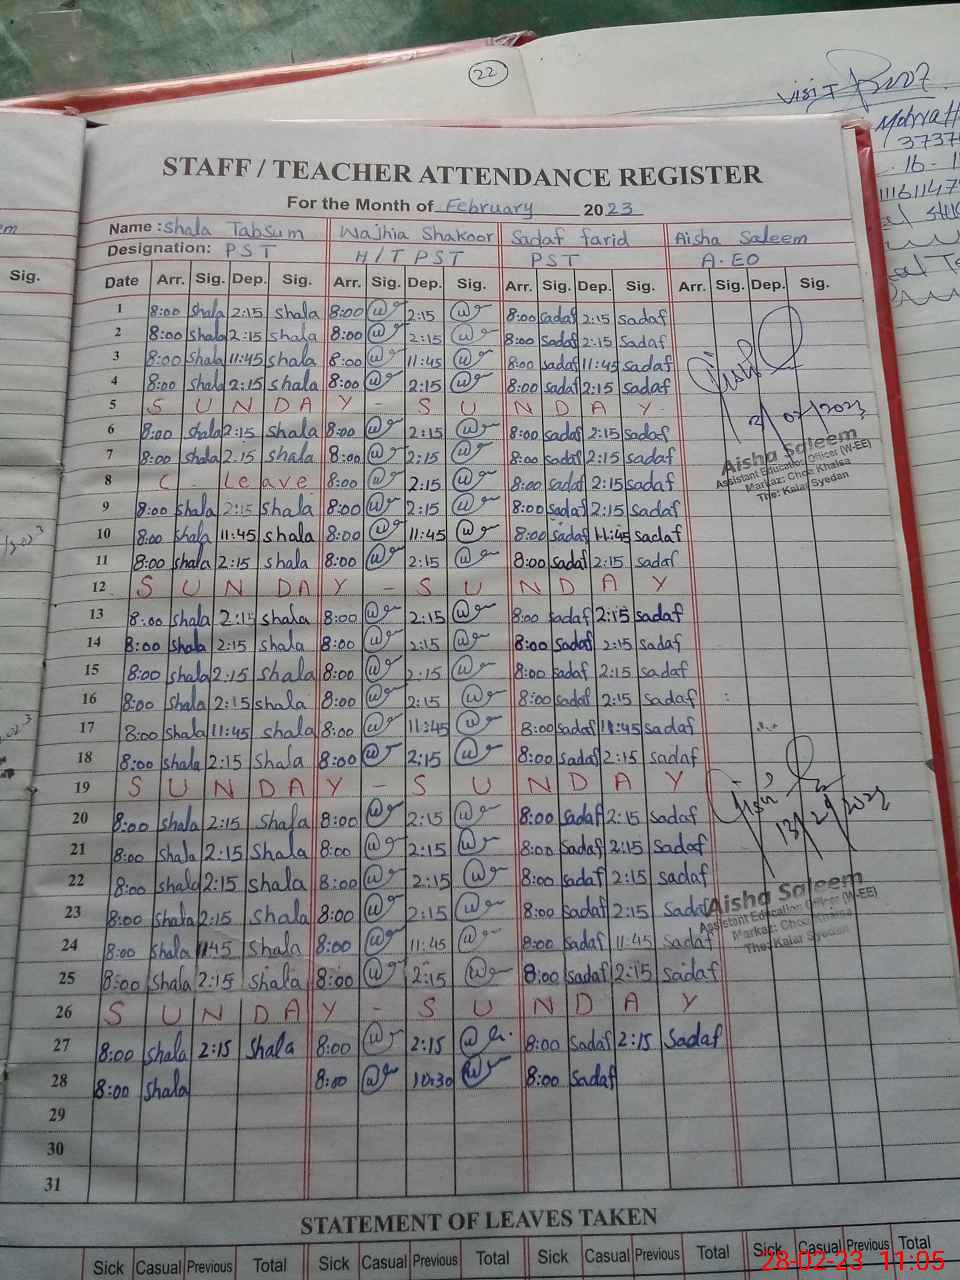 22
VISIT
STAFF / TEACHER ATTENDANCE REGISTER
For the Month of February 2023
Name : Shala Tabsum Wajhia Shakoor Sadaf farid Aisha Saleem
Designation: PST H/T PST PST A.EO
Sig. Date Arr. Sig. Dep. Sig. Arr. Sig. Dep. Sig. Arr. Sig. Dep. Sig. Arr. Sig. Dep. Sig.
1 8:00 shala 2:15 shala 8:00 2:15 8:00 sadaf 2:15 sadaf
2 8:00 shala 2:15 shala 8:00 2:15 8:00 sadaf 2:15 sadaf
3 8:00 shala 11:45 shala 8:00 11:45 8:00 sadaf 11:45 sadaf
4 8:00 shala 2:15 shala 8:00 2:15 8:00 sadaf 2:15 sadaf
5 SUNDAY - SUNDAY
6 8:00 shala 2:15 shala 8:00 2:15 8:00 sadaf 2:15 sadaf
7 8:00 shala 2:15 shala 8:00 2:15 8:00 sadaf 2:15 sadaf
8 C. Leave 8:00 2:15 8:00 sadaf 2:15 sadaf
9 8:00 shala 2:15 shala 8:00 2:15 8:00 sadaf 2:15 sadaf
10 8:00 shala 11:45 shala 8:00 11:45 8:00 sadaf 11:45 sadaf
11 8:00 shala 2:15 shala 8:00 2:15 8:00 sadaf 2:15 sadaf
12 SUNDAY - SUNDAY
13 8:00 shala 2:15 shala 8:00 2:15 8:00 sadaf 2:15 sadaf
14 8:00 shala 2:15 shala 8:00 2:15 8:00 sadaf 2:15 sadaf
15 8:00 shala 2:15 shala 8:00 2:15 8:00 sadaf 2:15 sadaf
16 8:00 shala 2:15 shala 8:00 2:15 8:00 sadaf 2:15 sadaf
17 8:00 shala 11:45 shala 8:00 11:45 8:00 sadaf 11:45 sadaf
18 8:00 shala 2:15 shala 8:00 2:15 8:00 sadaf 2:15 sadaf
19 SUNDAY - SUNDAY
20 8:00 shala 2:15 shala 8:00 2:15 8:00 sadaf 2:15 sadaf
21 8:00 shala 2:15 shala 8:00 2:15 8:00 sadaf 2:15 sadaf
22 8:00 shala 2:15 shala 8:00 2:15 8:00 sadaf 2:15 sadaf
23 8:00 shala 2:15 shala 8:00 2:15 8:00 sadaf 2:15 sadaf
24 8:00 shala 11:45 shala 8:00 11:45 8:00 sadaf 11:45 sadaf
25 8:00 shala 2:15 shala 8:00 2:15 8:00 sadaf 2:15 sadaf
26 SUNDAY - SUNDAY
27 8:00 shala 2:15 shala 8:00 2:15 8:00 sadaf 2:15 sadaf
28 8:00 shala 8:00 10:30 8:00 sadaf
29
30
31
Aisha Saleem
Assistant Education Officer (W-EE)
Markaz: Choa Khalsa
The: Kalar Syedan
13/2/2023
Aisha Saleem
Assistant Education Officer (W-EE)
Markaz: Choa Khalsa
The: Kalar Syedan
STATEMENT OF LEAVES TAKEN
Sick Casual Previous Total Sick Casual Previous Total Sick Casual Previous Total Sick Casual Previous Total
28-02-23 11:05